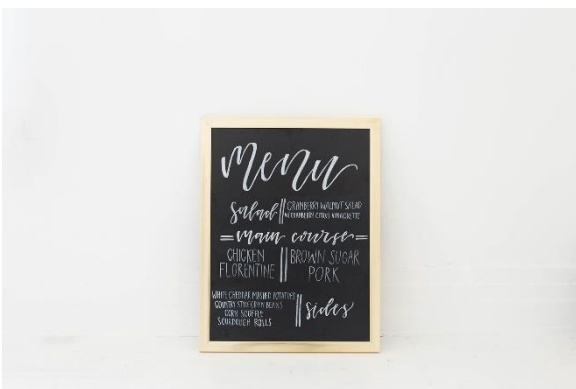 menu
salad || CRANBERRY WALNUT SALAD
W/ CRANBERRY CITRUS VINAIGRETTE
= main course =
CHICKEN FLORENTINE || BROWN SUGAR PORK
WHITE CHEDDAR MASHED POTATOES
COUNTRY STYLE GREEN BEANS
CORN SOUFFLE
SOURDOUGH ROLLS
sides